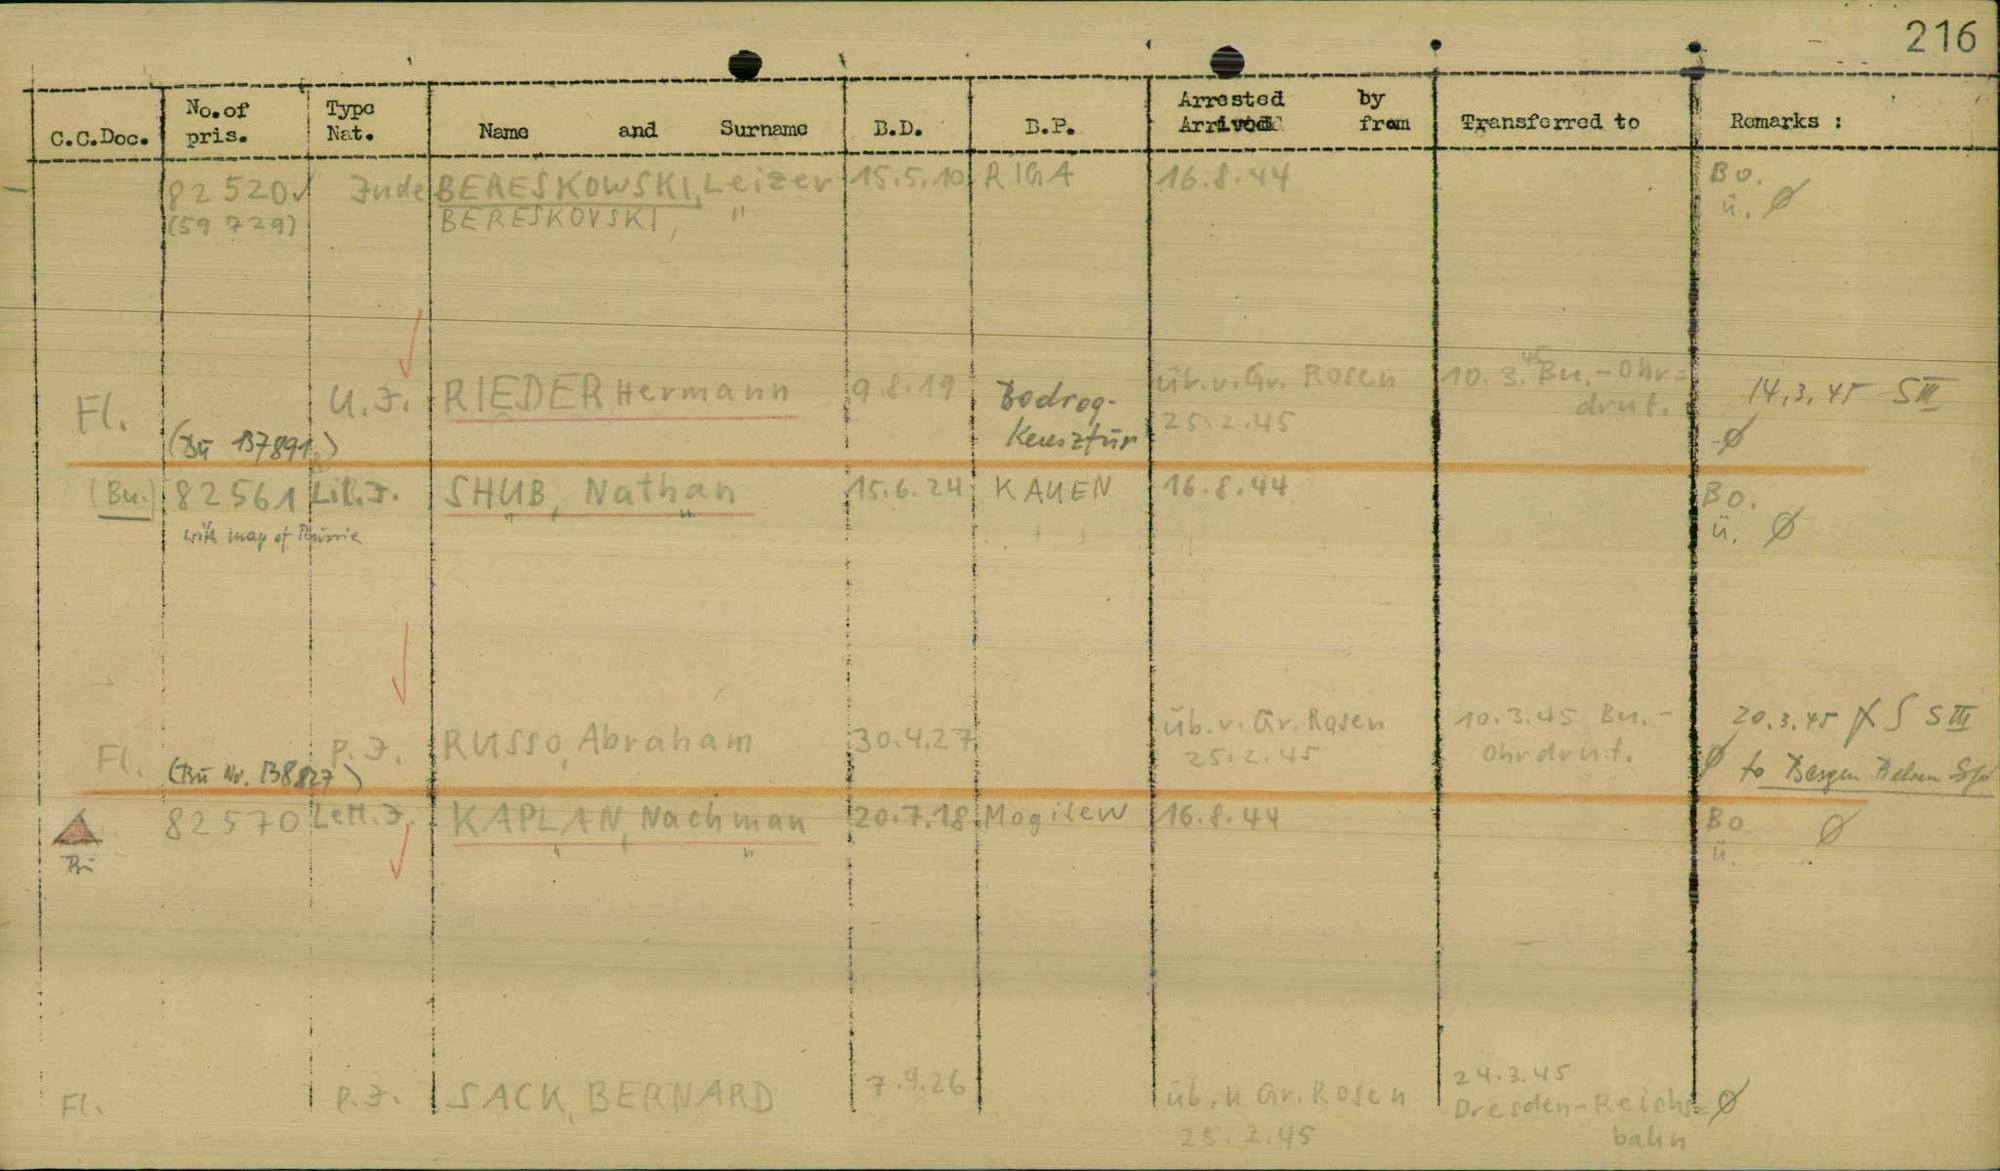 216
C.C.Doc. No.of pris. Type Nat. Name and Surname B.D. B.P. Arrested by Arrived from Transferred to Remarks :
82 520 Jude BERESKOWSKI, Leizer 15.5.10 RIGA 16.8.44 Bo.
(59 729) BERESKOVSKI, " ü. Ø
Fl. U.J. RIEDER Hermann 9.8.19 Bodrog- üb.v. Gr. Rosen 10.3.45 Bu.-Ohr= 14.3.45 SIII
(Bu 137891) Keresztur 25.2.45 druf. Ø
(Bu.) 82561 Lit.J. SHUB, Nathan 15.6.24 KAUEN 16.8.44 Bo.
with map of ü. Ø
Fl. P.J. RUSSO, Abraham 30.4.27 üb.v. Gr. Rosen 10.3.45 Bu.- 20.3.45 SIII
(Bu Nr. 138827) 25.2.45 Ohrdruf. Ø to Bergen Belsen
82570 Lett.J. KAPLAN, Nachman 20.7.18 Mogilew 16.8.44 Bo Ø
Bu ü.
Fl. P.J. SACK, BERNARD 7.9.26 üb. v Gr. Rosen 24.3.45
25.2.45 Dresden-Reichs= Ø
bahn